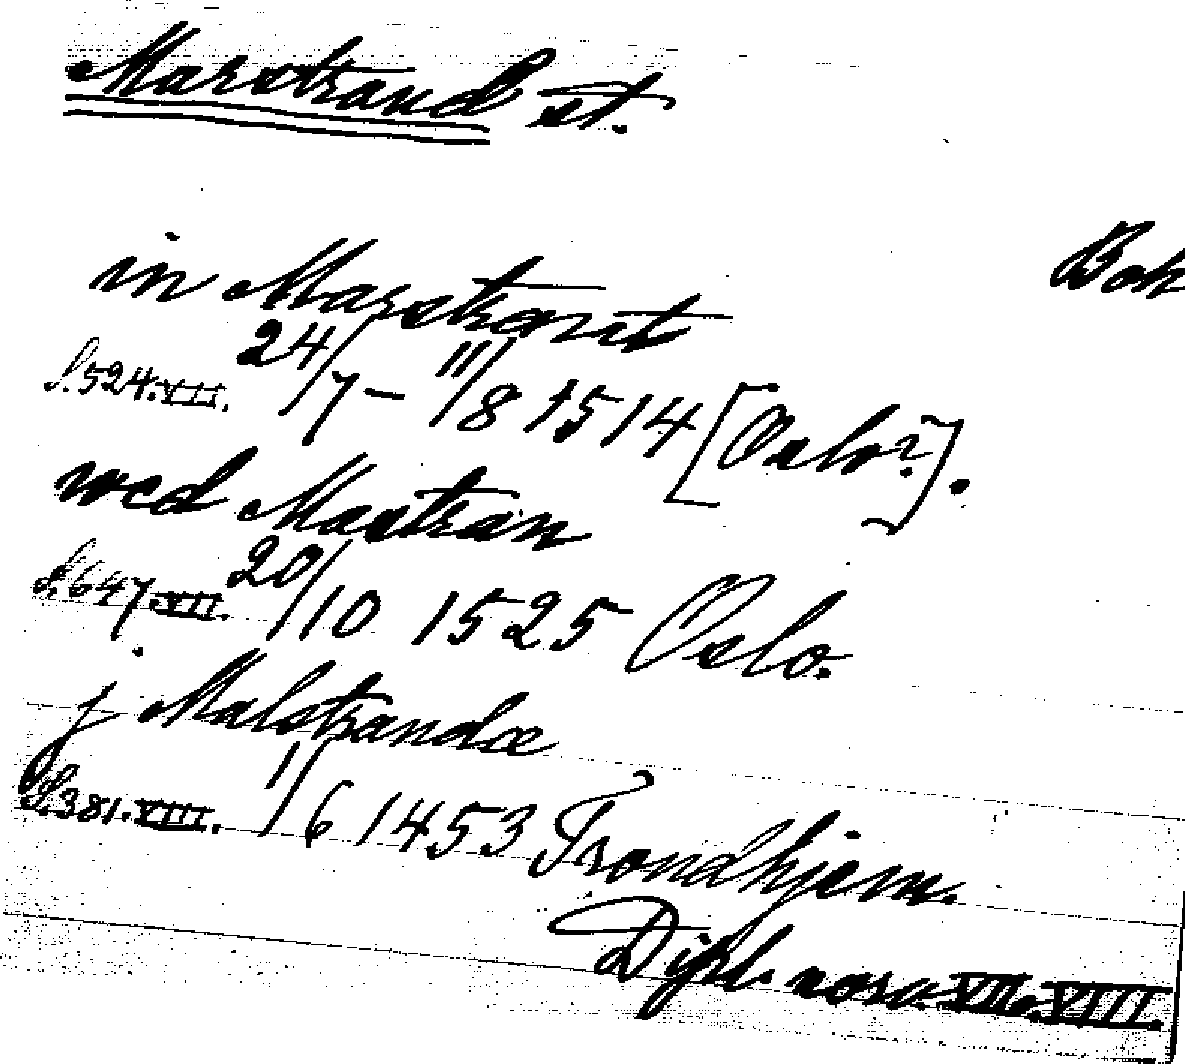 Marstrand st.
Boh
in Marstrant
S. 524. VII. 24/7 – 11/8 1514 [Oslo?].
wed Mastran
S. 647. VII. 20/10 1525 Oslo.
j Malstrandæ
S. 381. VIII. 1/6 1453 Trondhjem.
Dipl. norv. VII. VIII.